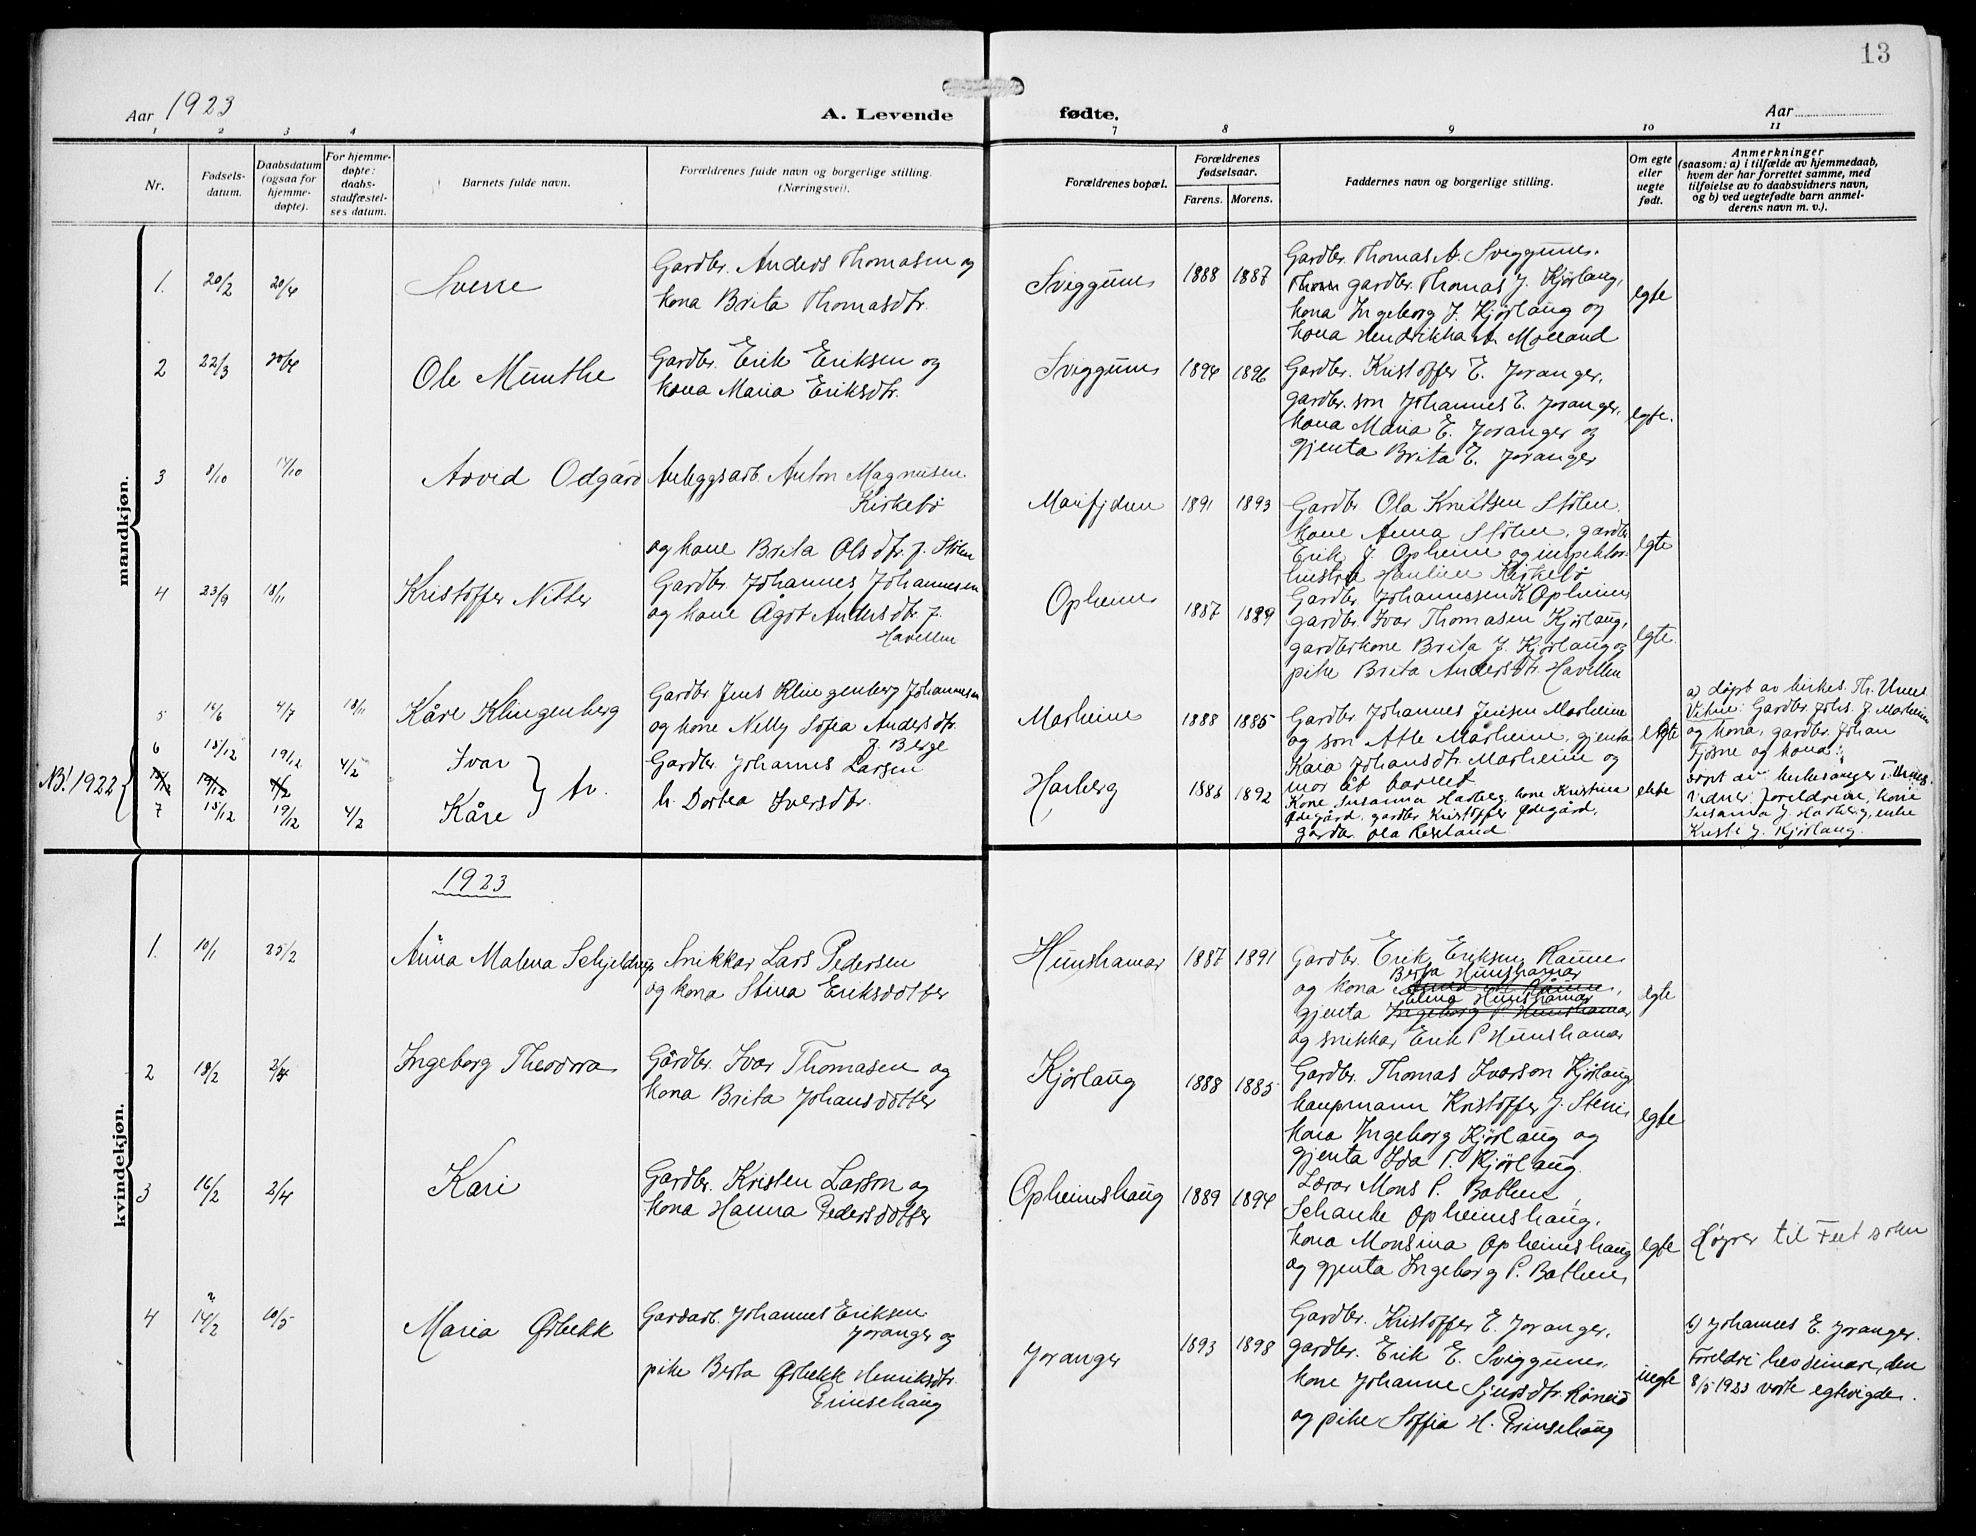 13
Aar 1923
A. Levende fødte.
Aar
1 2 3 4 7 8 9 10 11
Nr.
Fødsels-
datum.
Daabsdatum
(ogsaa for
hjemme-
døpte).
For hjemme-
døpte:
daabs-
stadfæstel-
ses datum.
Barnets fulde navn.
Forældrenes fulde navn og borgerlige stilling.
(Næringsvei).
Forældrenes bopæl.
Forældrenes
fødselsaar.
Farens. Morens.
Faddernes navn og borgerlige stilling.
Om egte
eller
uegte
født.
Anmerkninger
(saasom: a) i tilfælde av hjemmedaab,
hvem der har forrettet samme, med
tilføielse av to daabsvidners navn,
og b) ved uegtefødte barn anmel-
derens navn m. v.).
mandkjøn.
1. 20/2 20/4 Sverre
Gardbr. Anders Thomasen og
kona Brita Thomasdtr.
Sviggum 1888 1887
Gardbr. Thomas A. Sviggum.
gardbr. Thomas J. Kjørlaug,
kona Ingeborg J. Kjørlaug og
kona Hendrikka A. Molland
egte
2 22/3 20/4 Ole Munthe
Gardbr. Erik Eriksen og
kona Maria Eriksdtr.
Sviggum 1894 1896
Gardbr. Kristoffer E. Joranger,
gardbr. son Johannes E. Joranger,
kona Maria E. Joranger og
gjenta Brita E. Joranger
egte.
3 8/10 14/10 Arvid Odgård
Anleggsarb. Anton Magnusen
Kirkebø
og kone Brita Olsdtr. f. Stølen
Marifjøren 1891 1893
Gardbr Ola Knutsen Stølen
kone Anna Stølen, gardbr
Erik J. Opheim og inspektør-
Kirkebø
egte
4 23/9 18/11 Kristoffer Nitter
Gardbr. Johannes Johannesen
og kone Ågot Andersdtr. f.
Havellen
Opheim 1887 1889
Gardbr. Johannessen K Opheim
gardbr. Ivar Thomasen Kjørlaug,
gardbrkone Brita J. Kjørlaug og
pike Brita Andersdtr. Havellen
egte.
5 14/6 4/7 18/11 Kåre Klingenberg
Gardbr. Jens Klingenberg Johannesen
og kone Nelly Sofia Andersdtr.
f. Berge
Marheim 1888 1885
Gardbr Johannes Jensen Marheim
og son Atle Marheim, gjenta
Kaia Johansdtr. Marheim og
mor åt barnet
egte
a) døpt av kirkes. Th. Urnes
Vitne: Gardbr. Johs. J. Marheim
og kona, gardbr. Johan
Fjøsne og kona.
NB! 1922
6 15/12 19/12 4/2 Ivar
7 15/12 19/12 4/2 Kåre
} tv.
Gardbr. Johannes Larsen
h. Dortea Iversdtr.
Harberg 1886 1892
Kone Susanna Harberg, kone Kristina
Ødegård. gardbr Kristoffer Ødegård,
gardbr. Ola Røsland
ekte
døpt av kirkesanger i Urnes.
Vidner: foreldrene, kone
Susanna J. Harberg, enke
J. Kjørlaug.
kvindekjøn.
1923
1. 10/1 25/2 Anna Malena Schjeldrup
Snikkar Lars Pedersen
og kona Stina Eriksdotter
Hunshamar 1887 1891
Gardbr. Erik Eriksen Raum
Berta Hunshamar
og kona
Malena Hunshamar
gjenta Ingeborg P. Hunshamar
og snikkar Erik P Hunshamar
egte
2 18/2 2/4 Ingeborg Theodora
Gårdbr. Ivar Thomasen og
kona Brita Johansdotter
Kjørlaug 1888 1885
Gardbr. Thomas Ivarson Kjørlaug
kaupmann Kristoffer J. Stein,
kona Ingeborg Kjørlaug og
gjenta Ida T. Kjørlaug.
egte
3 16/2 2/4 Kari
Gardbr. Kristen Larson og
kona Hanna Pedersdotter
Opheimshaug 1889 1894
Lærar Mons P. Bathen,
Schanke Opheimshaug,
kona Monsina Opheimshaug
og gjenta Ingeborg P. Bathen,
egte
Høyrer til Feet sokn
4 14/2 10/5 Maria Ørbekk
Gardarb. Johannes Eriksen
Joranger og
pike Berta Ørbekk Henriksdtr.
Prinsehaug
Joranger 1893 1898
Gardbr. Kristoffer E. Joranger,
gardbr. Erik E. Sviggum,
kone Johanne Sjursdtr. Røneid
og pike Soffia H. Prinsehaug
uegte
b) Johannes E. Joranger.
Foreldri den
8/5 1923 vorte egtevigde.